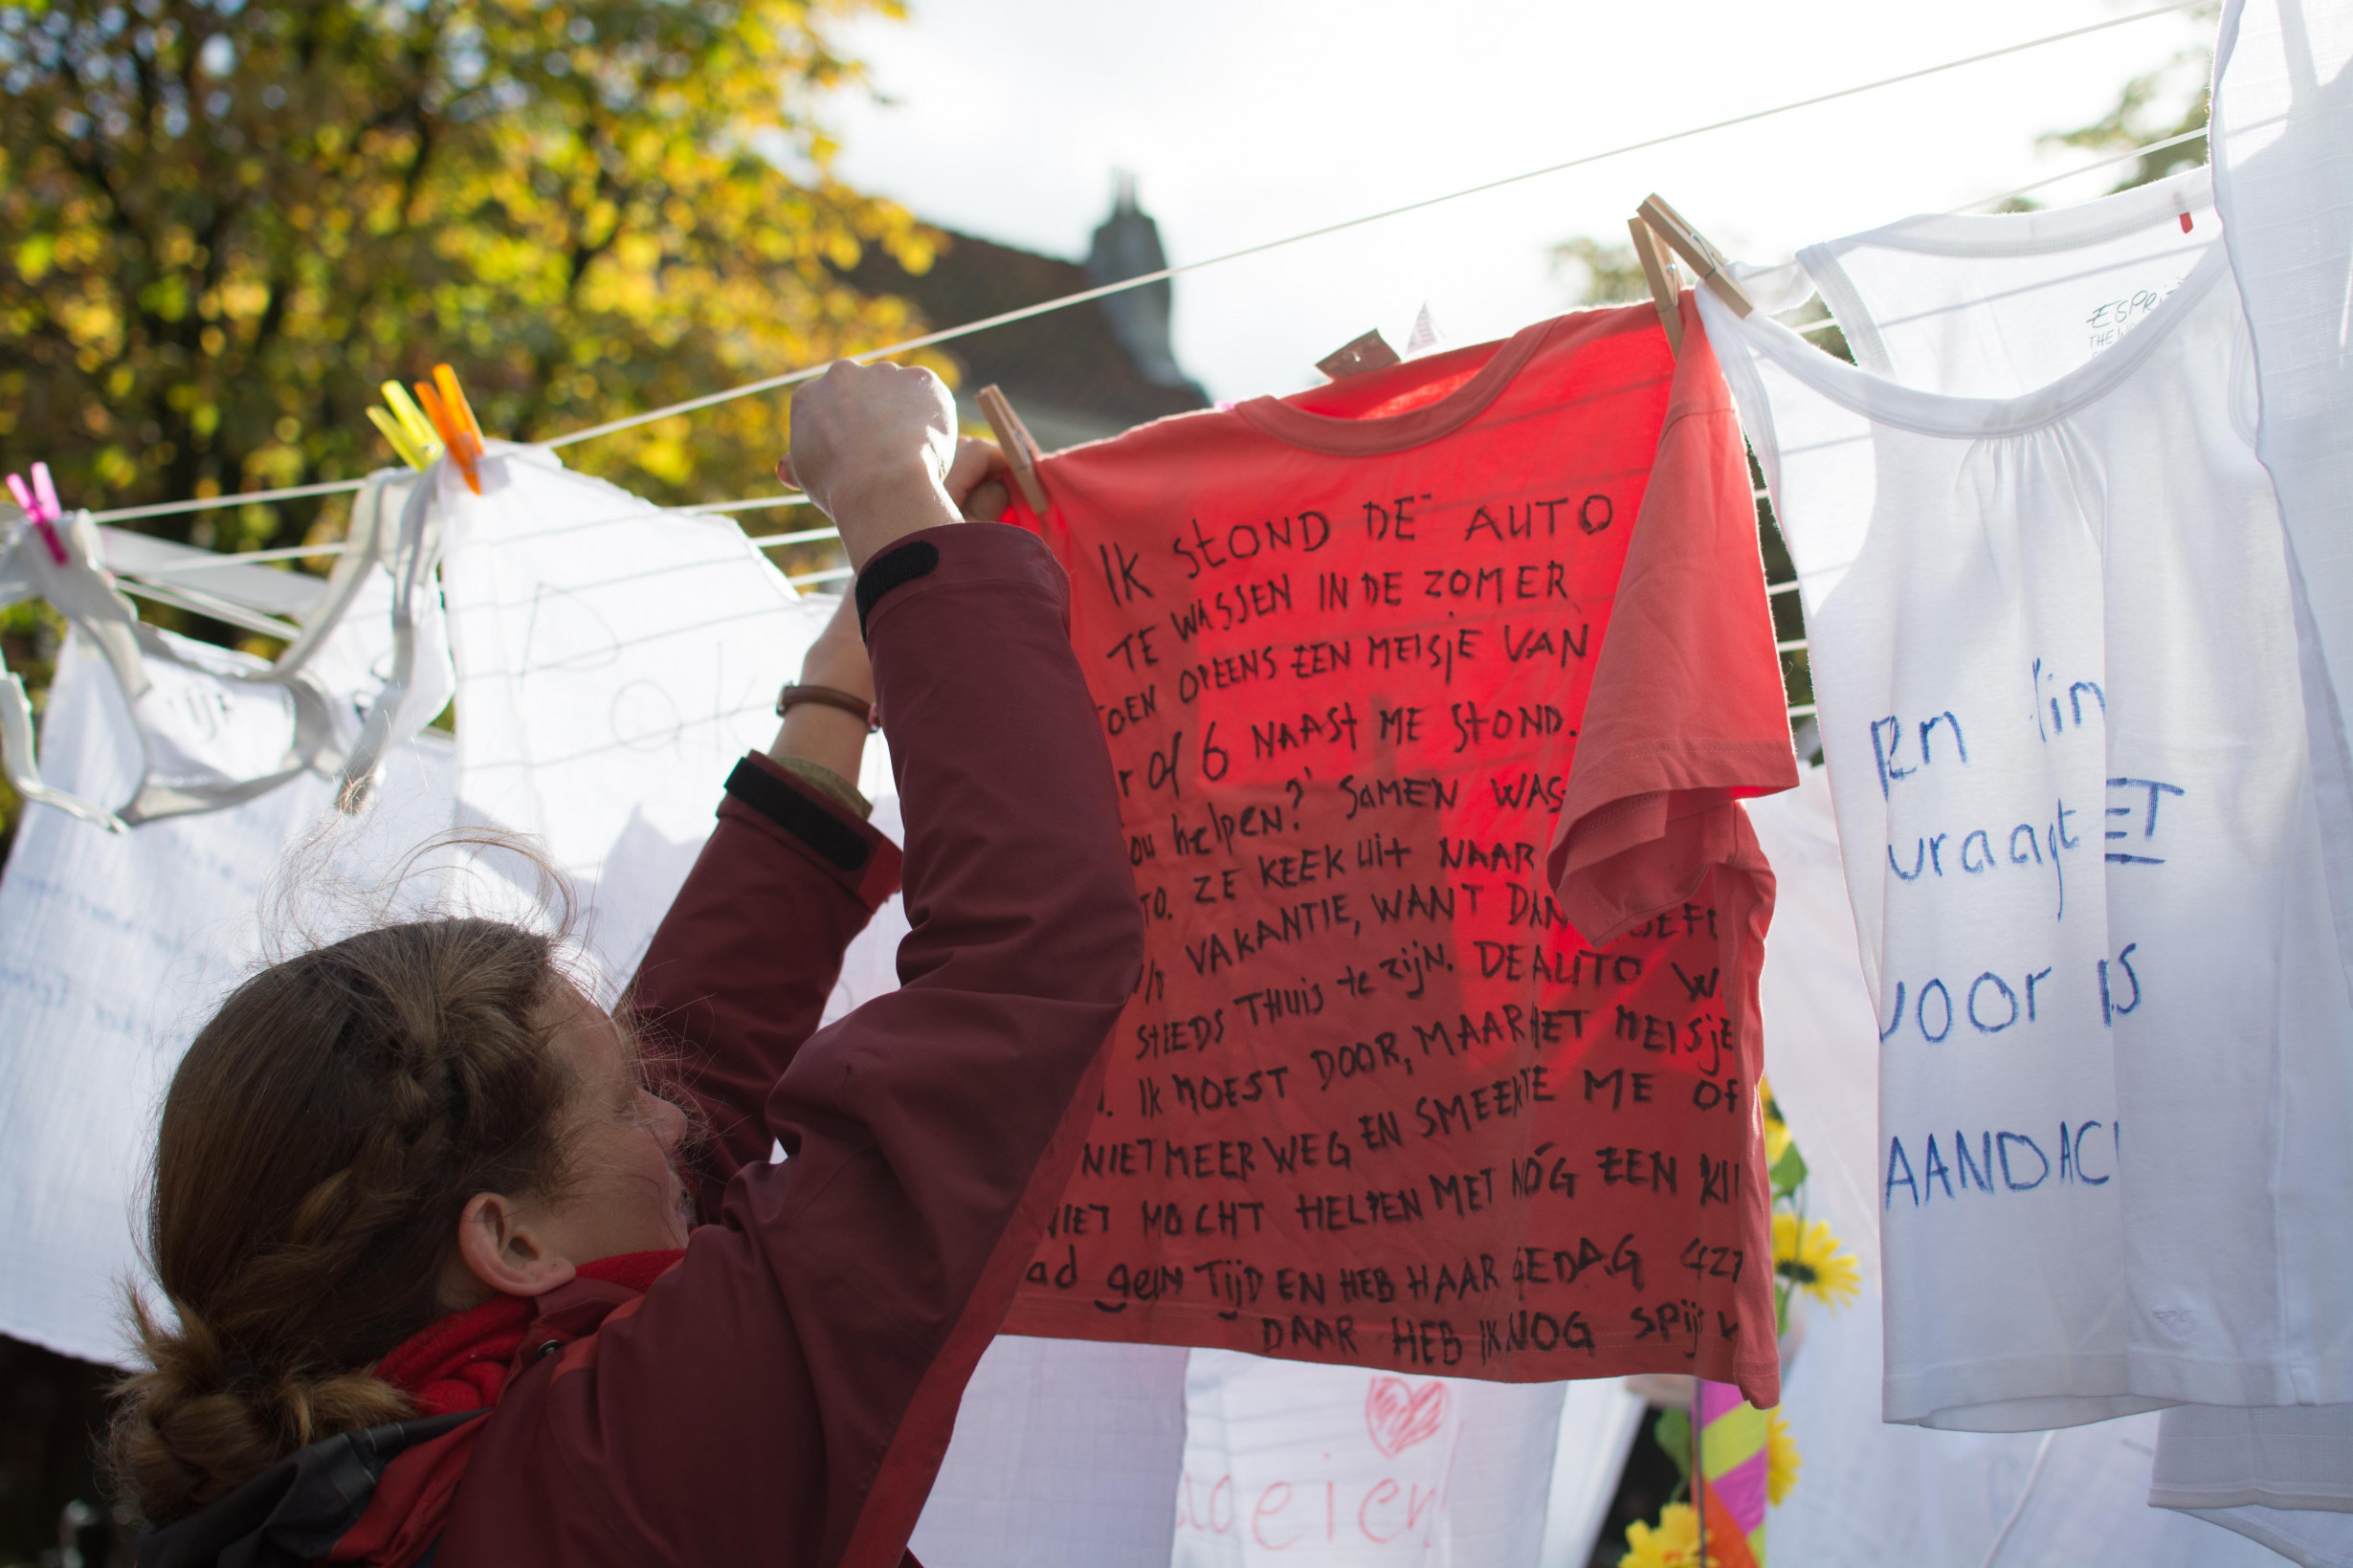 IK StOND DE AUTO
TE WASSEN IN DE ZOMER
OEN OPEENS EEN MEISjE VAN
r of 6 NAASt ME StOND.
ou helpen? SAMEN WAS
TO. ZE KEEK Uit NAAR
VAKANTIE, WANT DAN OEFE
StEEDS THUIS te zijN. DE AUTO W
IK MOEST DOOR, MAAR HET MEISjE
NIET MEER WEG EN SMEEKTE ME Of
NIET MOCHT HELPEN MET NÓG EEN KI
ad geen TijD EN HEB HAAR GEDAG
DAAR HEB IK NOG SPijt
Een
vraagt
voor IS
AANDAC
ET
ESPRIT
THE